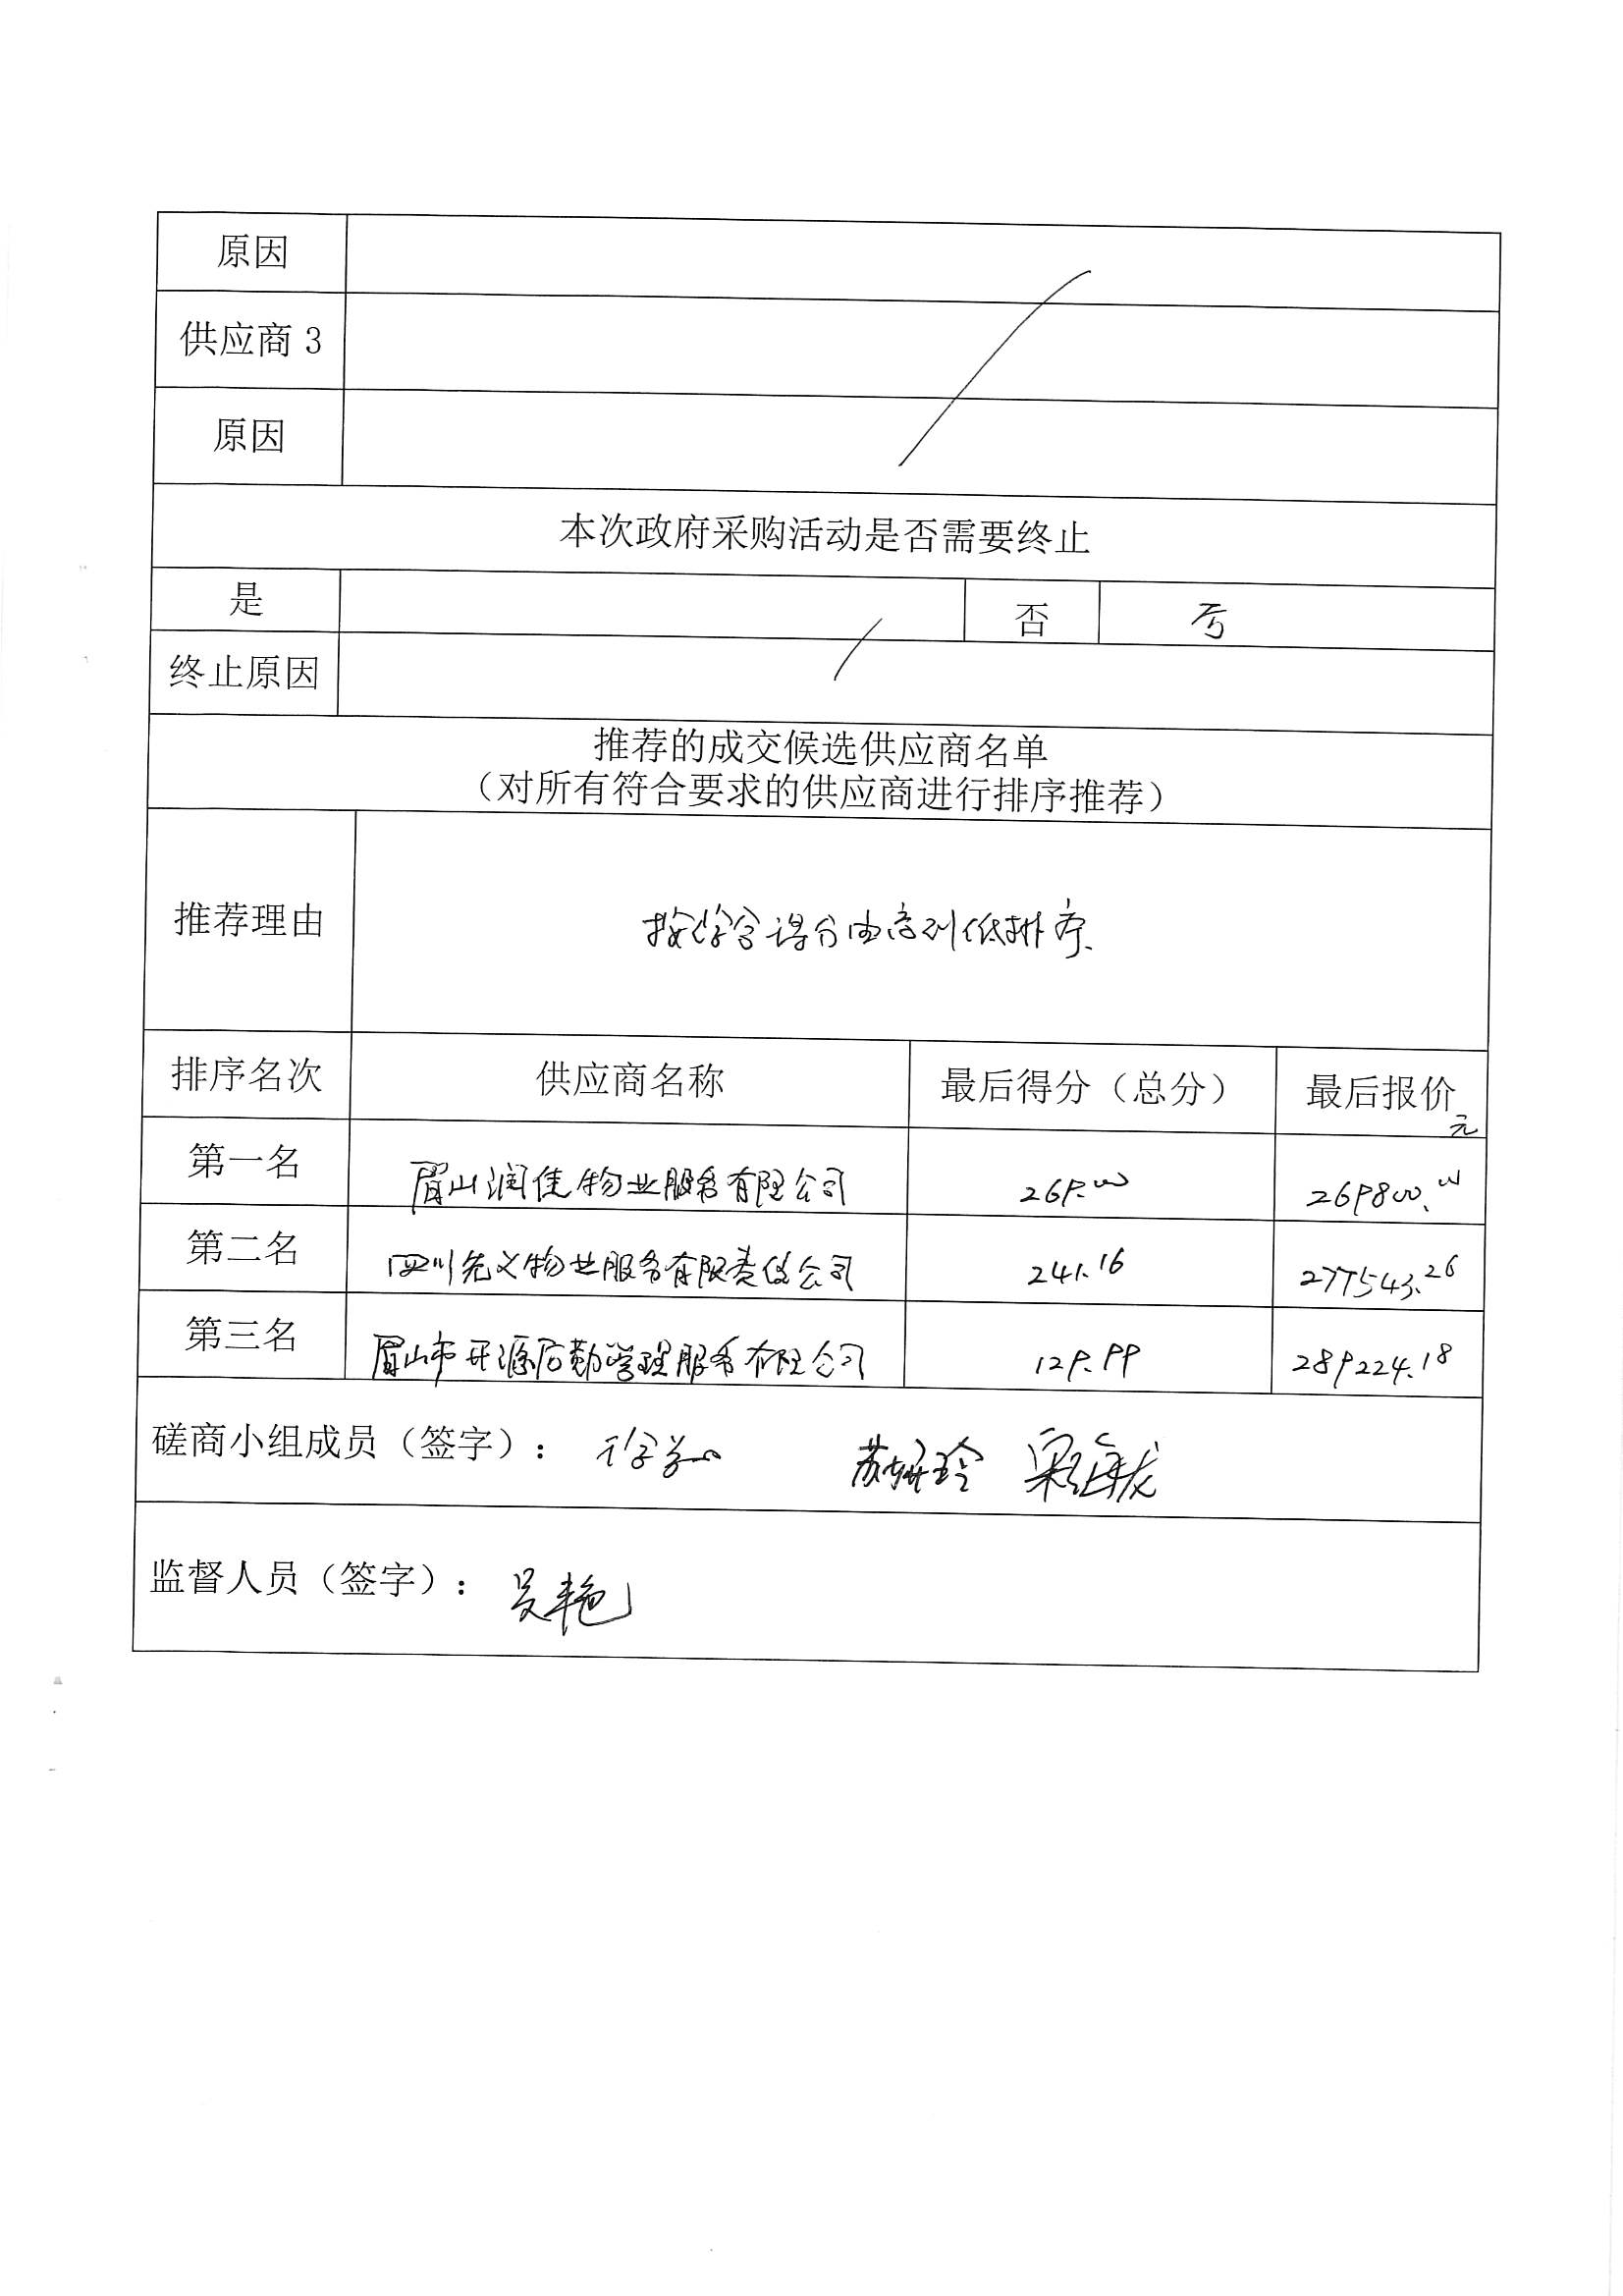 原因
供应商 3
原因
本次政府采购活动是否需要终止
是 否 否
终止原因
推荐的成交候选供应商名单
（对所有符合要求的供应商进行排序推荐）
推荐理由 按综合得分由高到低排序
排序名次 供应商名称 最后得分（总分） 最后报价 元
第一名 眉山润佳物业服务有限公司 269.00 269800.00
第二名 四川先义物业服务有限责任公司 241.16 277543.26
第三名 眉山市开源后勤管理服务有限公司 129.99 289224.18
磋商小组成员（签字）： 苏妍玲
监督人员（签字）： 吴艳